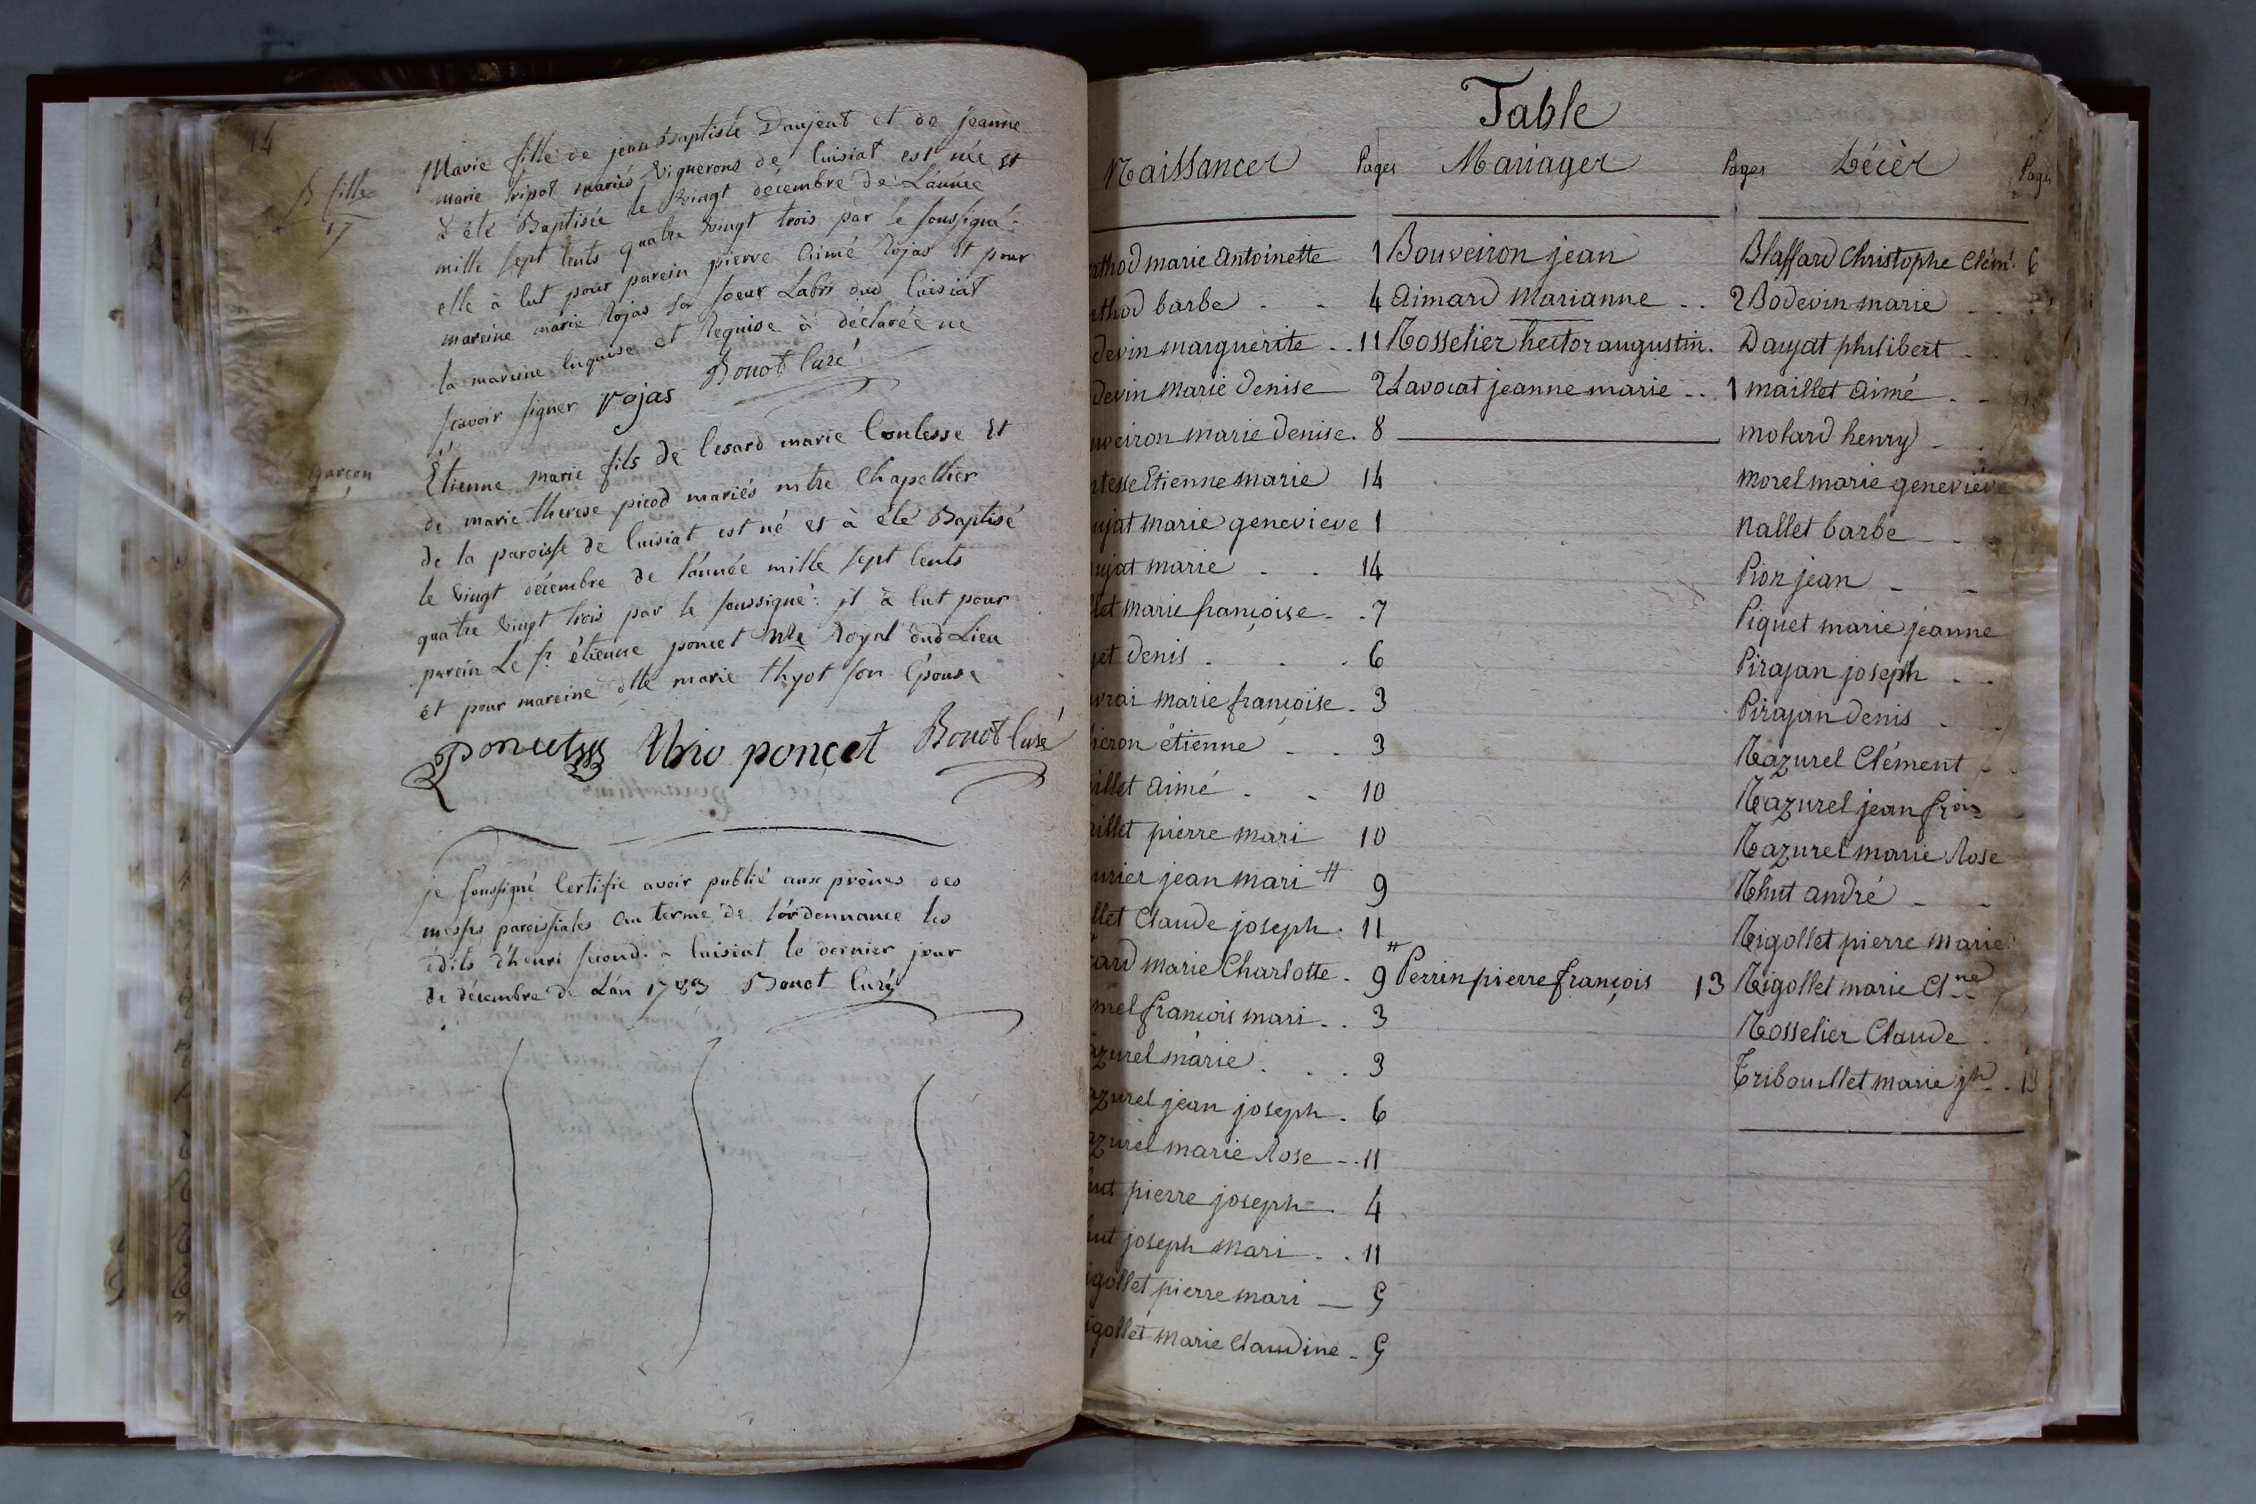 14
fille
17
Marie fille de jean Baptiste Daujeat et de jeanne
marie tripot mariés vignerons de Cuisiat est née et
à été Baptisée le vingt décembre de L'année
mille sept cents quatre vingt trois par le soussigné:
elle à eut pour parein pierre Aimé Rojas et pour
mareine marie Rojas sa soeur Labrs dud Cuisiat
la mareine enquise et Requise à déclarée ne
scavoir signer rojas Bonot Curé
garçon
Étienne marie fils de Cesard marie Contesse Et
de marie therese picod mariés mtre Chapellier
de la paroisse de Cuisiat est né et à été Baptisé
le vingt décembre de l'année mille sept cents
quatre vingt trois par le soussigné: il à eut pour
parein Le sr étienne poncet Royal dud Lieu
et pour mareine dlle marie thyot son Épouse
poncet thio poncet Bonot Curé
je soussigné Certifie avoir publié aux prônes des
messes paroissiales au terme de l'ordonnance les
édits d'henri second. à Cuisiat le dernier jour
de décembre de L'an 1783 Bonot Curé
Table
Naissances Pages Mariages Pages Décès Pages
thod marie Antoinette 1 Bouveiron jean Blaffard Christophe Clémt. 6
thod barbe - - 4 Aimard Marianne . . 2 Bodevin marie
devin marguerite . . 11 Rosselier hector augustin. Daujat philibert
devin Marie Denise 2 Lavocat jeanne marie . . 1 maillet Aimé
uveiron marie Denise. 8 molard henry
ntesse Etienne marie 14 morel marie geneviéve
ujat marie genevieve 1 nallet barbe
ujat marie . . 14 Pion jean
let marie françoise . . 7 Piquet marie jeanne
et denis . . . 6 Pirajan joseph
vrai marie françoise . 3 Pirajan denis
ieron étienne . . 3 Razurel Clément
illet Aimé - - 10 Razurel jean frois
aillet pierre mari 10 Razurel marie Rose
urier jean mari # 9 Rhut andré
llet Claude joseph . 11 Rigollet pierre marie
ard marie Charlotte . 9 # Perrin pierre françois 13 Rigollet marie Clne
mel françois mari . . 3 Rosselier Claude
azurel marie . . . 3 Tribouillet marie jh . 13
azurel jean joseph . 6
azurel marie Rose - . 11
hut pierre joseph . 4
hut joseph mari . . 11
igollet pierre mari — 5
igollet Marie Claudine - 5